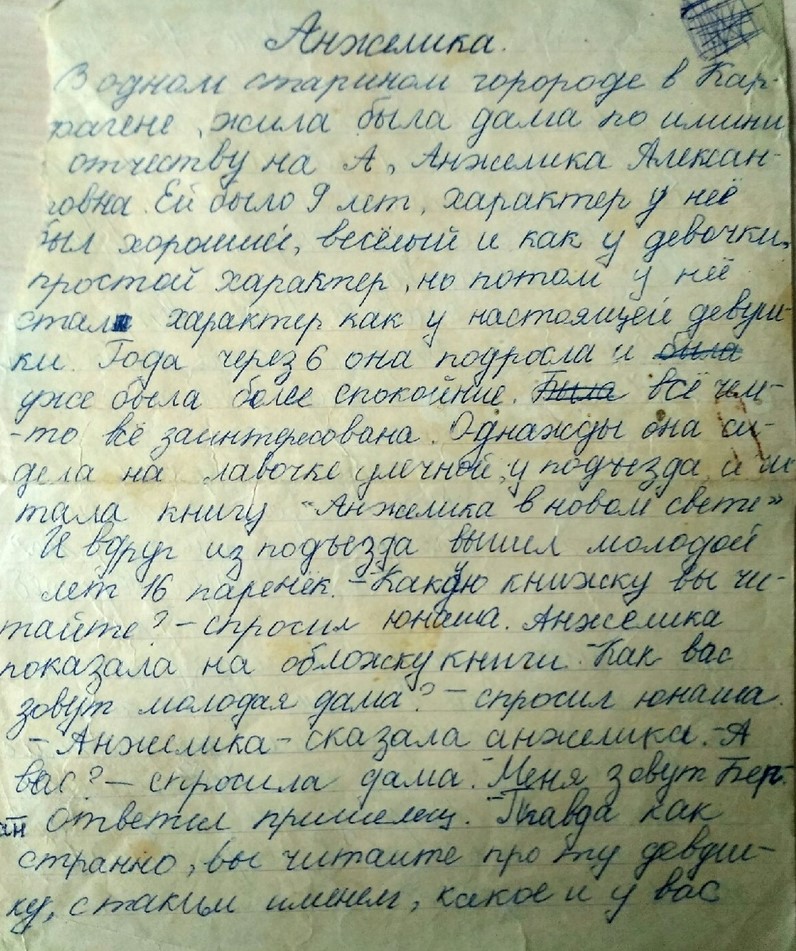 Анжелика.
В одном старином горороде в Кар-
фагене, жила была дама по имини
отчеству на А, Анжелика Алексан-
ровна. Ей было 9 лет, характер у неё
был хороший, весёлый и как у девочки,
простой характер, но потом у неё
стал характер как у настоящей девуш-
ки. Года через 6 она подросла и была
уже была более спокойние. Была всё чем-
-то всё заинтересована. Однажды она си-
дела на лавочке улечной, у подъезда и чи
тала книгу "Анжелика в новом свете»
И вдруг из подъезда вышел молодой
лет 16 паренёк. - Какую книжку вы чи-
тайте? - спросил юнаша. Анжелика
показала на обложку книги. - Как вас
зовут молодая дама? - спросил юнаша.
- Анжелика - сказала анжелика. - А
вас? - спросила дама. - Меня зовут Бер-
ан ответил пришелец. - Правда как
странно, вы читаите про ту девуш-
ку, с таким именем, какое и у вас